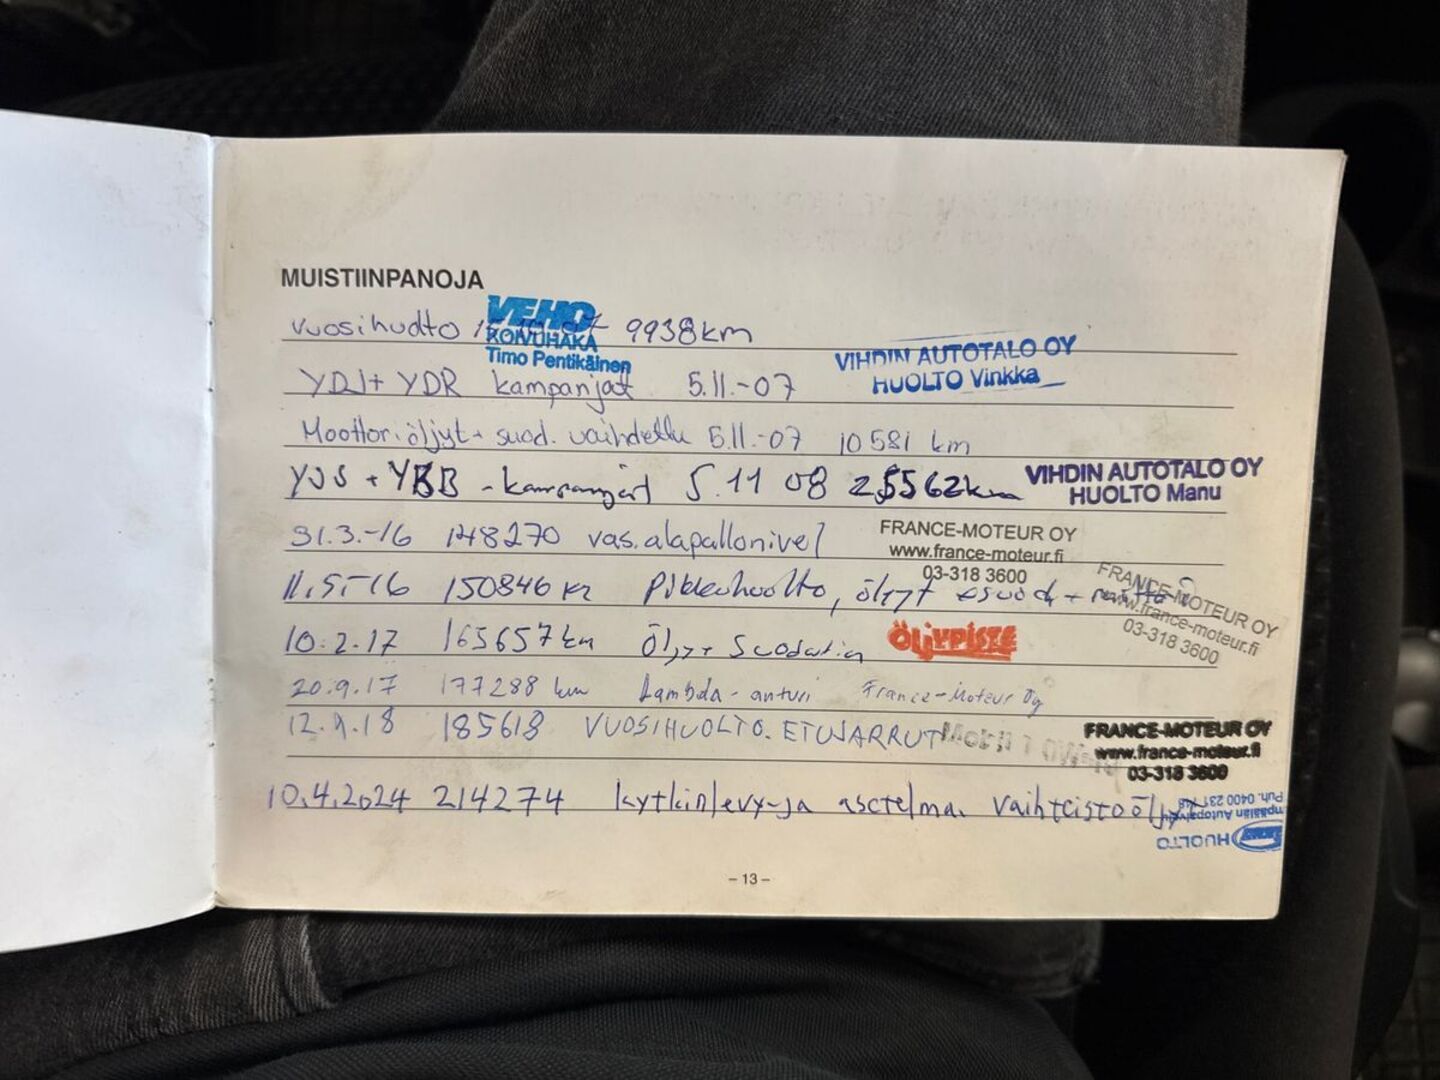 MUISTIINPANOJA
vuosihuolto 9938km
VEHO
KOIVUHAKA
Timo Pentikäinen
VIHDIN AUTOTALO OY
HUOLTO Vinkka
YDJ+ YDR kampanjat 5.11.-07
Moottoriöljyt + suod. vaihdettu 5.11.-07 10581 km
YJS + YBB -kampanjat 5.11 08 25562km
VIHDIN AUTOTALO OY
HUOLTO Manu
31.3.-16 148270 vas.alapallonivel
FRANCE-MOTEUR OY
www.france-moteur.fi
03-318 3600
11.5.-16 150846 Pikkuhuolto, öljyt +suod.+
FRANCE-MOTEUR OY
www.france-moteur.fi
03-318 3600
10.2.17 165657km Öljy+ Suodatin
ÖLJYPISTE
20.9.17 177288 km Lambda-anturi France-Moteur Oy
12.9.18 185618 VUOSIHUOLTO. ETUJARRUT
FRANCE-MOTEUR OY
www.france-moteur.fi
03-318 3600
10.4.2024 214274 kytkinlevy-ja asetelma. Vaihteistoöljyt
Puh. 0400 231
Autopalvelu
HUOLTO
– 13 –